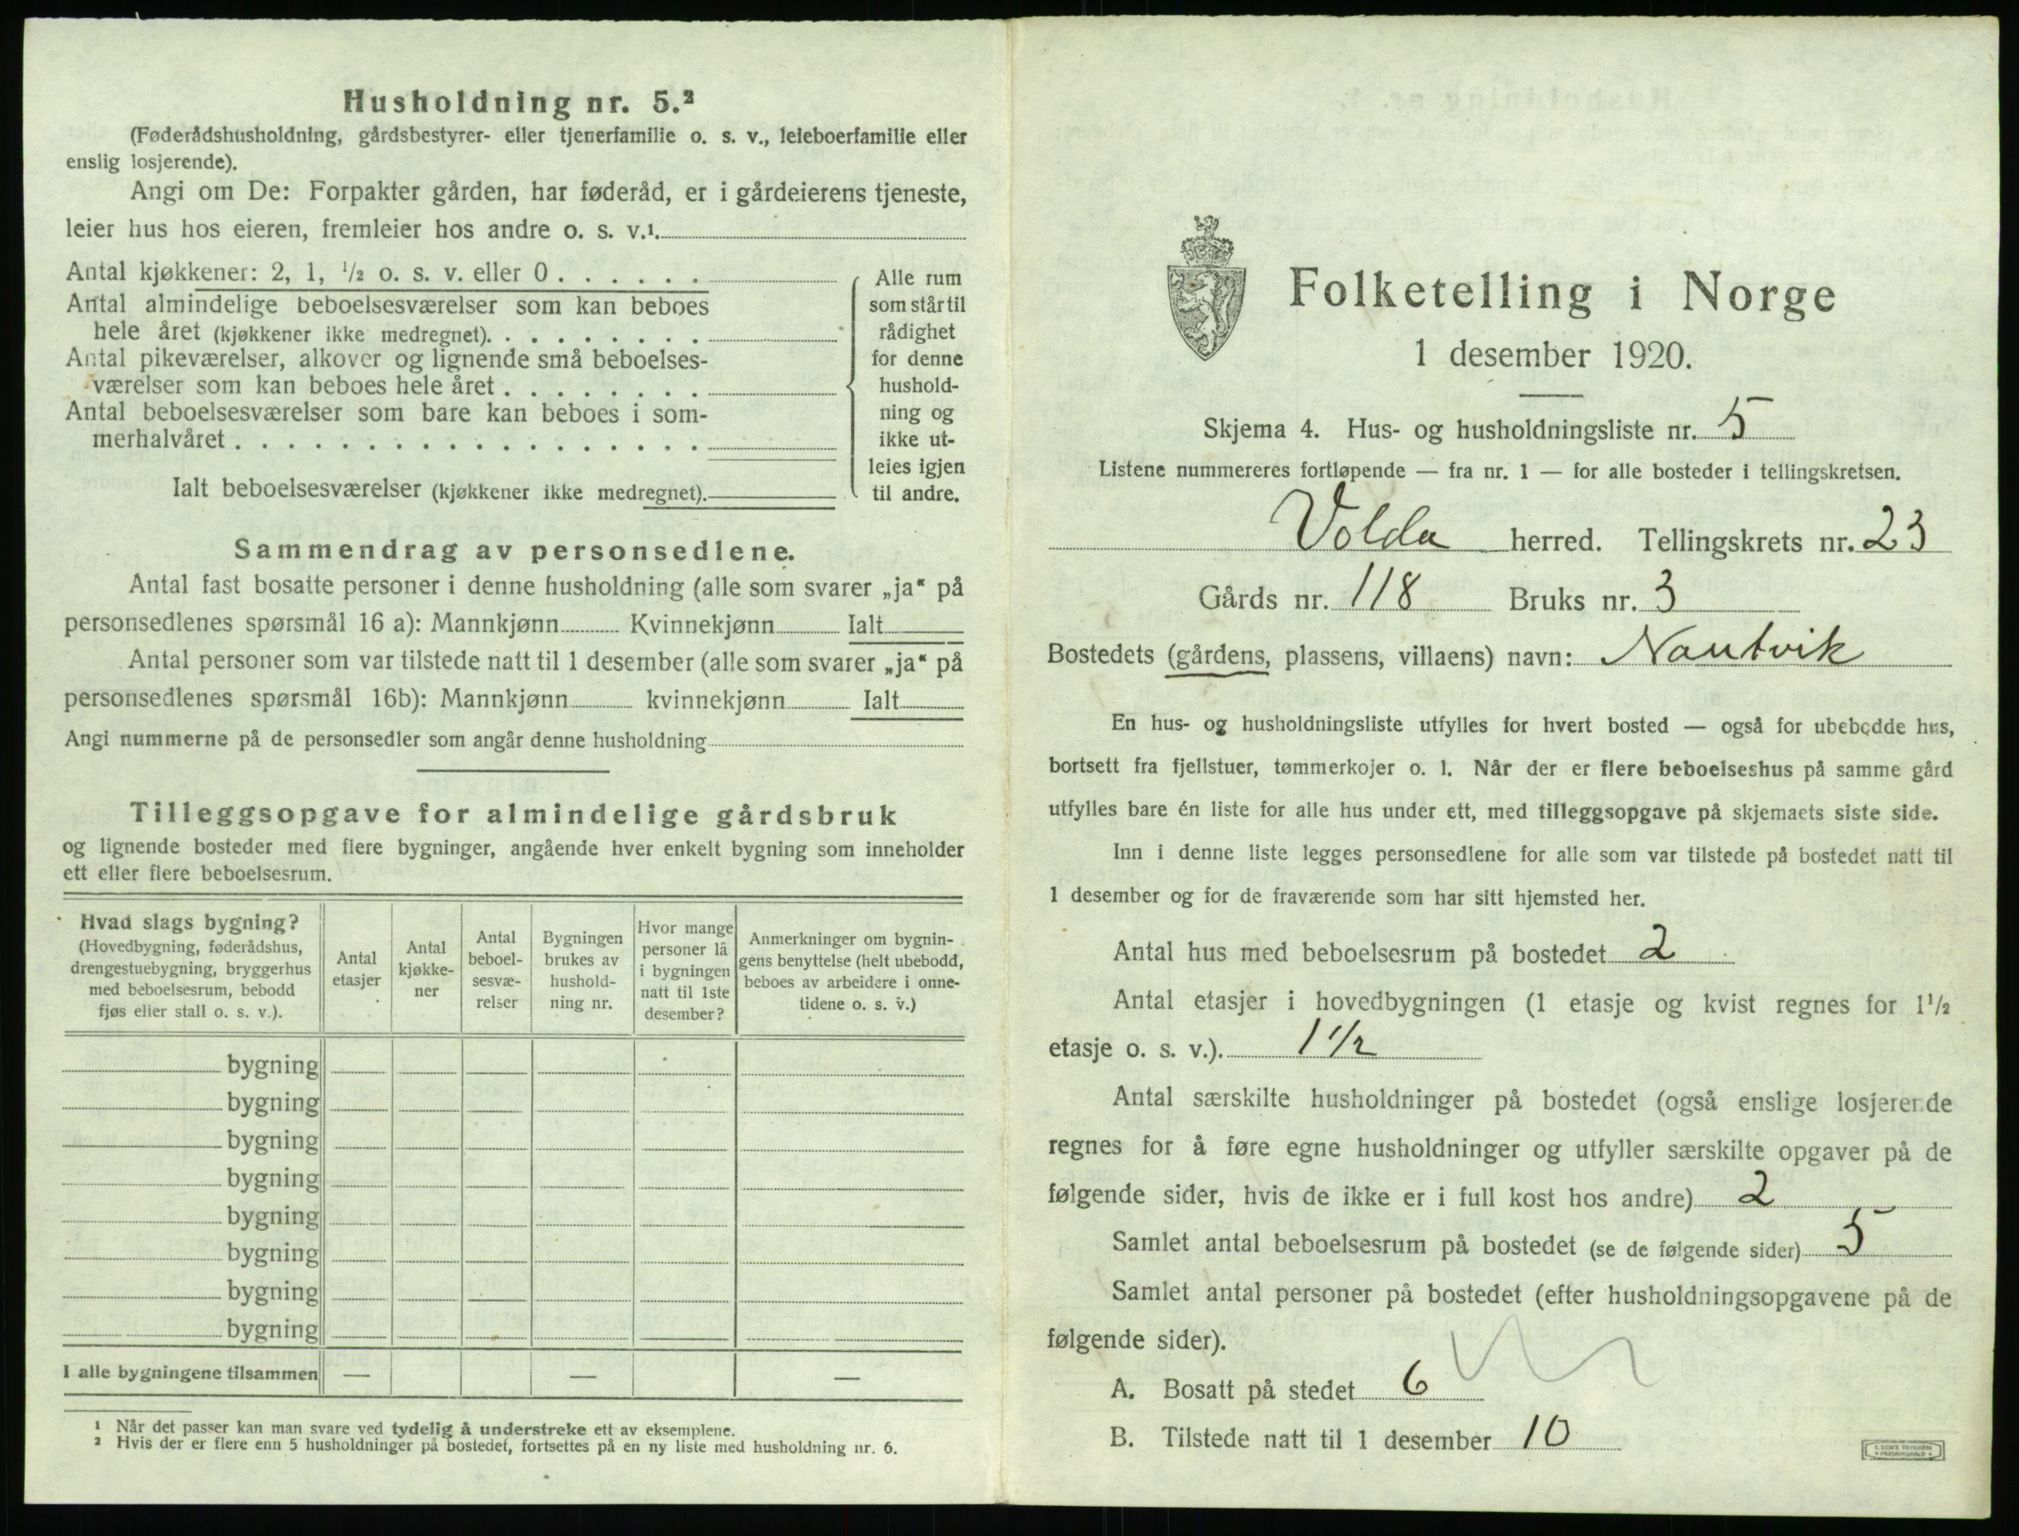 Husholdning nr. 5.²
(Føderådshusholdning, gårdsbestyrer- eller tjenerfamilie o. s. v., leieboerfamilie eller
enslig losjerende).
Angi om De: Forpakter gården, har føderåd, er i gårdeierens tjeneste,
leier hus hos eieren, fremleier hos andre o. s. v.¹.
Antal kjøkkener: 2, 1, ½ o. s. v. eller 0 . . . . . .
Antal almindelige beboelsesværelser som kan beboes
hele året (kjøkkener ikke medregnet). . . . . . . . .
Antal pikeværelser, alkover og lignende små beboelses-
værelser som kan beboes hele året . . . . . . . .
Antal beboelsesværelser som bare kan beboes i som-
merhalvåret . . . . . . . . . . . . . . . . . .
Ialt beboelsesværelser (kjøkkener ikke medregnet).
Alle rum
som står til
rådighet
for denne
hushold-
ning og
ikke ut-
leies igjen
til andre.
Sammendrag av personsedlene.
Antal fast bosatte personer i denne husholdning (alle som svarer „ja“ på
personsedlenes spørsmål 16 a): Mannkjønn Kvinnekjønn Ialt
Antal personer som var tilstede natt til 1 desember (alle som svarer „ja“ på
personsedlenes spørsmål 16b): Mannkjønn kvinnekjønn Ialt
Angi nummerne på de personsedler som angår denne husholdning
Tilleggsopgave for almindelige gårdsbruk
og lignende bosteder med flere bygninger, angående hver enkelt bygning som inneholder
ett eller flere beboelsesrum.
Hvad slags bygning?
(Hovedbygning, føderådshus,
drengestuebygning, bryggerhus
med beboelsesrum, bebodd
fjøs eller stall o. s. v.).
Antal
etasjer
Antal
kjøkke-
ner
Antal
beboel-
sesvæ-
relser
Bygningen
brukes av
hushold-
ning nr.
Hvor mange
personer lå
i bygningen
natt til 1ste
desember?
Anmerkninger om bygnin-
gens benyttelse (helt ubebodd,
beboes av arbeidere i onne-
tidene o. s. v.)
bygning
bygning
bygning
bygning
bygning
bygning
bygning
bygning
I alle bygningene tilsammen — — —
¹ Når det passer kan man svare ved tydelig å understreke ett av eksemplene.
² Hvis der er flere enn 5 husholdninger på bostedet, fortsettes på en ny liste med husholdning nr. 6.
Folketelling i Norge
1 desember 1920.
Skjema 4. Hus- og husholdningsliste nr. 5
Listene nummereres fortløpende — fra nr. 1 — for alle bosteder i tellingskretsen.
Volda herred. Tellingskrets nr. 23
Gårds nr. 118 Bruks nr. 3
Bostedets (gårdens, plassens, villaens) navn: Nautvik
En hus- og husholdningsliste utfylles for hvert bosted — også for ubebodde hus,
bortsett fra fjellstuer, tømmerkojer o. l. Når der er flere beboelseshus på samme gård
utfylles bare én liste for alle hus under ett, med tilleggsopgave på skjemaets siste side.
Inn i denne liste legges personsedlene for alle som var tilstede på bostedet natt til
1 desember og for de fraværende som har sitt hjemsted her.
Antal hus med beboelsesrum på bostedet 2
Antal etasjer i hovedbygningen (1 etasje og kvist regnes for 1½
etasje o. s. v.). 1 1/2
Antal særskilte husholdninger på bostedet (også enslige losjerende
regnes for å føre egne husholdninger og utfyller særskilte opgaver på de
følgende sider, hvis de ikke er i full kost hos andre) 2
Samlet antal beboelsesrum på bostedet (se de følgende sider) 5
Samlet antal personer på bostedet (efter husholdningsopgavene på de
følgende sider).
A. Bosatt på stedet 6
B. Tilstede natt til 1 desember 10